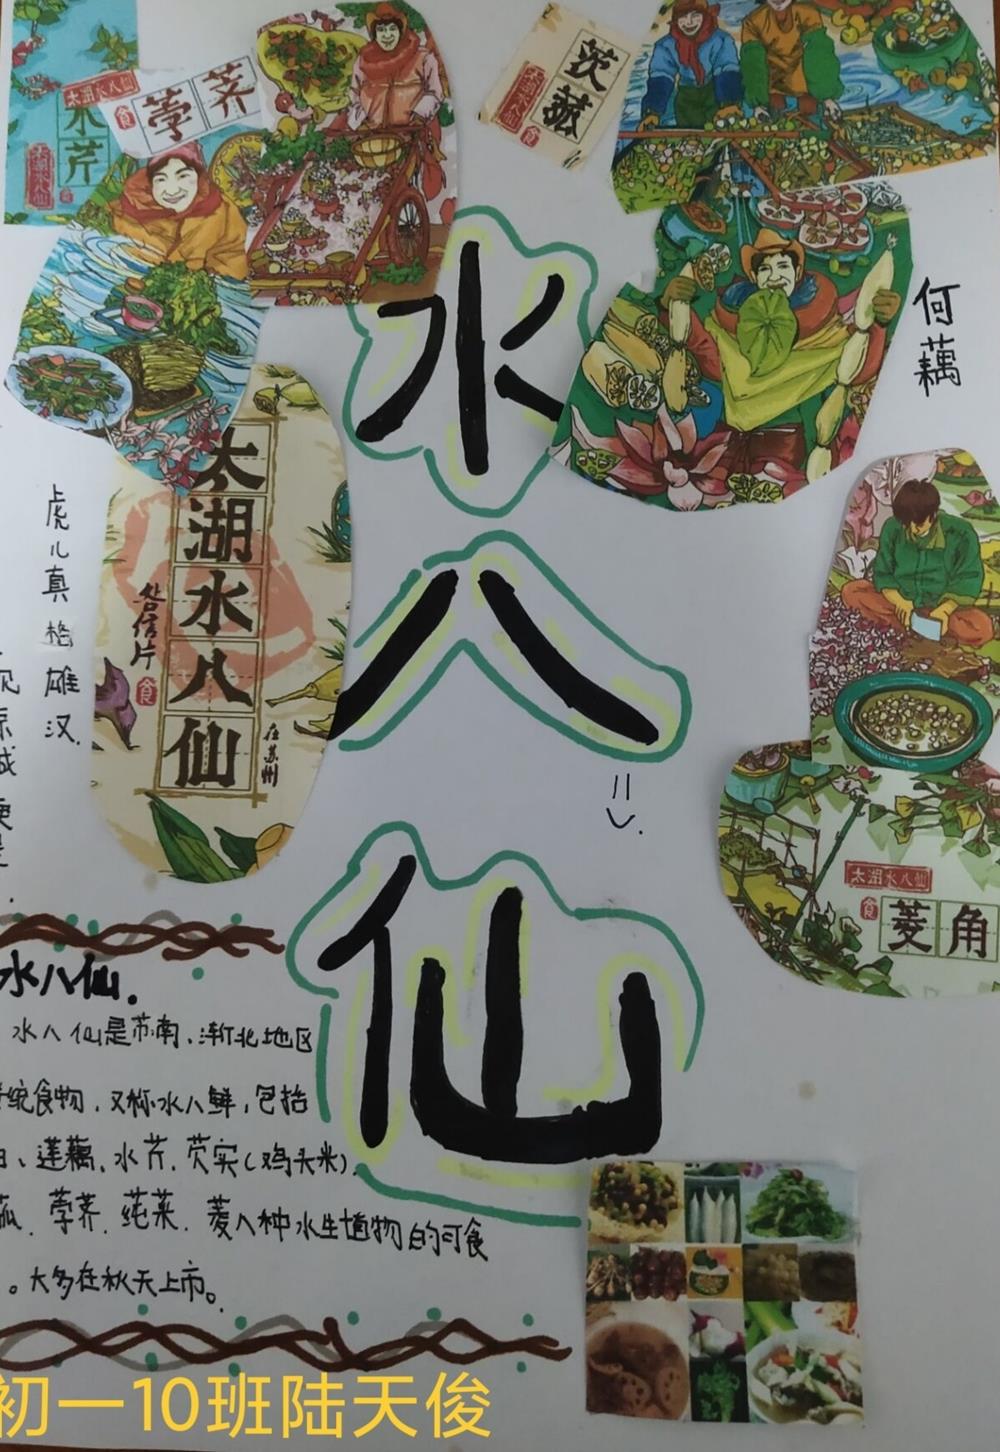 太湖水八仙
水芹
太湖水八仙
食
荸荠
茨菰
太湖水八仙
食
水八仙
何藕
虎儿真格雄汉.
太湖水八仙
明信片
食
在苏州
太湖水八仙
食
菱角
水八仙.
水八仙是苏南、浙北地区
统食物,又称水八鲜,包括
、莲藕、水芹、芡实(鸡头米)、
菰、荸荠、莼菜、菱八种水生植物的可食
。大多在秋天上市。
初一10班陆天俊